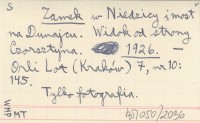 S
Zamek w Niedzicy i most
na Dunajcu. Widok od strony
Czorsztyna. 1926. —
Orli Lot (Kraków) 7, nr 10:
145.
Tylko fotografia.
MT